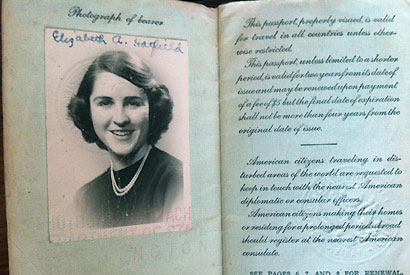 Photograph of bearer
Elizabeth A. Hatfield
This passport, properly visaed, is valid
for travel in all countries unless other-
wise restricted.
This passport, unless limited to a shorter
period, is valid for two years from its date of
issue and may be renewed upon payment
of a fee of $5 but the final date of expiration
shall not be more than four years from the
original date of issue.
American citizens traveling in dis-
turbed areas of the world are requested to
keep in touch with the nearest American
diplomatic or consular officers.
American citizens making their homes
or residing for a prolonged period abroad
should register at the nearest American
consulate.
SEE PAGES 6, 7, AND 8 FOR RENEWAL,